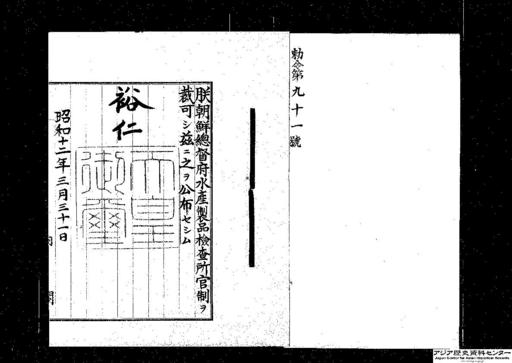 勅令第九十一號
朕朝鮮總督府水產製品檢查所官制ヲ
裁可シ茲ニ之ヲ公布セシム
裕仁
天皇御璽
昭和十二年三月三十一日
アジア歴史資料センター
Japan Center for Asian Historical Records